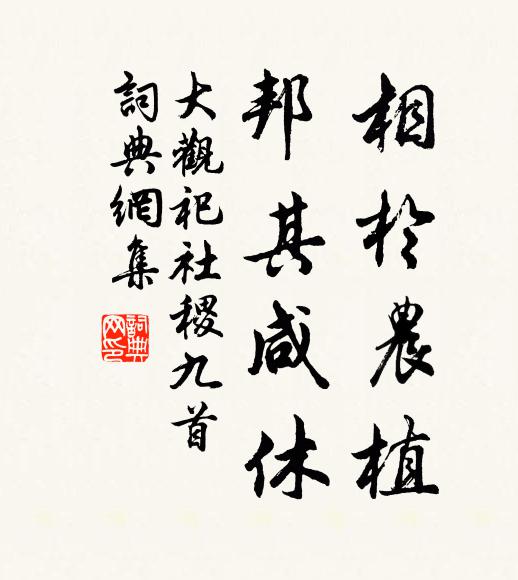 相於農植
邦其咸休
大觀祀社稷九首
詞典網集
詞典网印